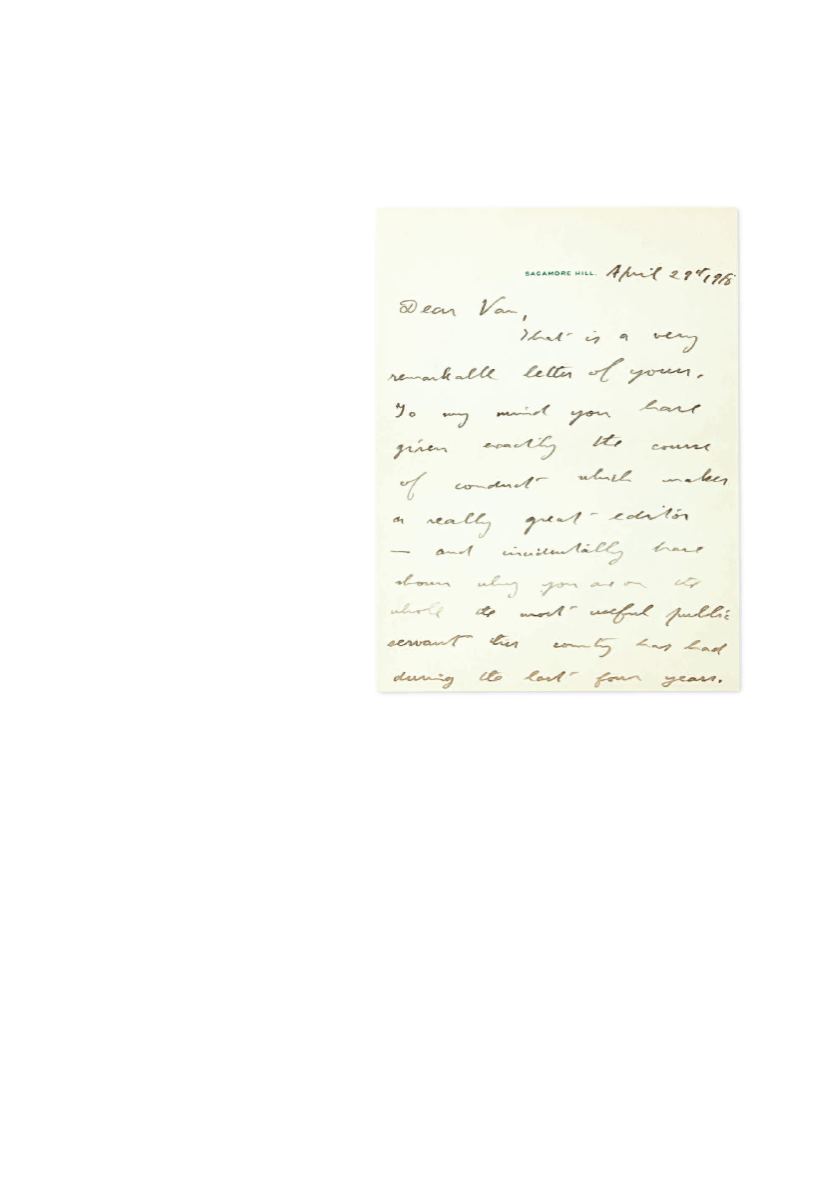 SAGAMORE HILL. April 29th 1918
Dear Van,
That is a very
remarkable letter of yours.
To my mind you have
given exactly the course
of conduct which makes
a really great editor
— and incidentally have
shown why you are on the
whole the most useful public
servant this country has had
during the last four years.